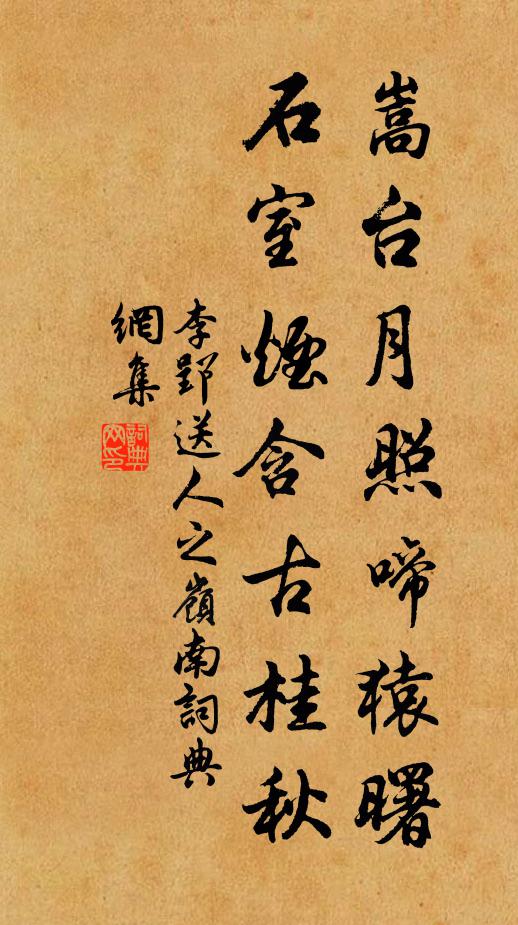 嵩台月照啼猿曙
石室煙含古桂秋
李郢送人之嶺南詞典
網集
詞典
网印